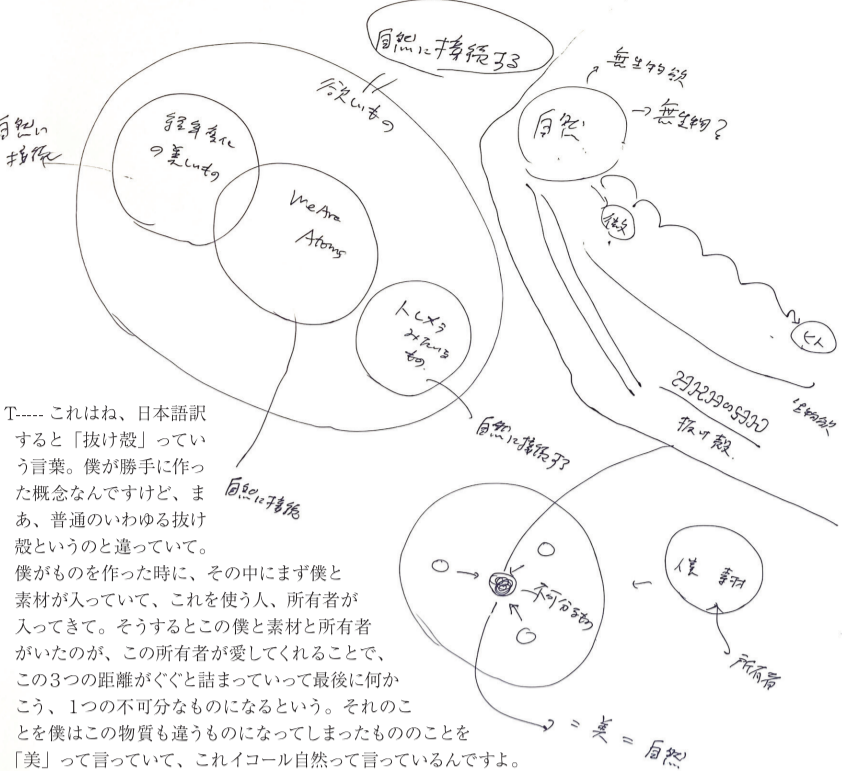 自然に接続する
欲しいもの
自然に
接続
経年変化
の美しいもの
We Are
Atoms
みたいな
もの
自然に接続する
自然に接続
自然
→無生物欲
→無生物?
微
ヒト
生物欲
抜け殻
不可分なもの
僕 素材
所有者
= 美 = 自然
T----- これはね、日本語訳
すると「抜け殻」ってい
う言葉。僕が勝手に作っ
た概念なんですけど、ま
あ、普通のいわゆる抜け
殻というのと違っていて。
僕がものを作った時に、その中にまず僕と
素材が入っていて、これを使う人、所有者が
入ってきて。そうするとこの僕と素材と所有者
がいたのが、この所有者が愛してくれることで、
この3つの距離がぐぐと詰まっていって最後に何か
こう、1つの不可分なものになるという。それのこ
とを僕はこの物質も違うものになってしまったもののことを
「美」って言っていて、これイコール自然って言っているんですよ。